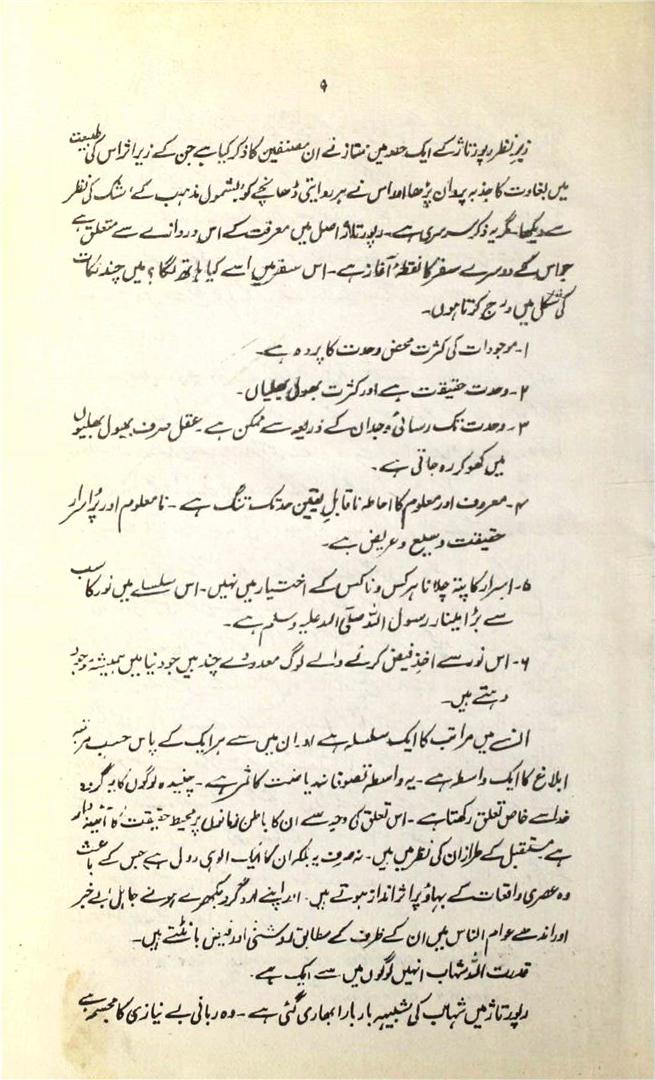 ۹
زیرِ نظر رپورتاژ کے ایک حصہ میں ممتاز نے ان مصنفین کا ذکر کیا ہے جن کے زیرِ اثر اس کی طبیعت
میں بغاوت کا جذبہ پروان چڑھا اور اس نے ہر روایتی ڈھانچے کو بشمول مذہب کے شک کی نظر
سے دیکھا۔ مگر یہ ذکر سرسری ہے۔ رپورتاژ اصل میں معرفت کے اس دروازے سے متعلق ہے
جو اس کے دوسرے سفر کا نقطۂ آغاز ہے۔ اس سفر میں اسے کیا ہاتھ لگا؟ میں چند نکات
کی شکل میں درج کرتا ہوں۔
۱۔ موجودات کی کثرت محض وحدت کا پردہ ہے۔
۲۔ وحدت حقیقت ہے اور کثرت بھول بھلیاں۔
۳۔ وحدت تک رسائی وجدان کے ذریعہ سے ممکن ہے۔ عقل صرف بھول بھلیوں
میں کھو کر رہ جاتی ہے۔
۴۔ معروف اور معلوم کا احاطہ ناقابلِ یقین حد تک تنگ ہے۔ نامعلوم اور پُراسرار
حقیقت وسیع و عریض ہے۔
۵۔ اسرار کا پتہ چلانا ہر کس و ناکس کے اختیار میں نہیں۔ اس سلسلے میں نور کا سب
سے بڑا مینار رسول اللہ صلی اللہ علیہ وسلم ہے۔
۶۔ اس نور سے اخذِ فیض کرنے والے لوگ معدودے چند ہیں جو دنیا میں ہمیشہ موجود
رہتے ہیں۔
ان میں مراتب کا ایک سلسلہ ہے اور ان میں سے ہر ایک کے پاس حسبِ مرتبہ
ابلاغ کا ایک واسطہ ہے۔ یہ واسطہ تصوفانہ ریاضت کا ثمر ہے۔ چنیدہ لوگوں کا یہ گروہ
خدا سے خاص تعلق رکھتا ہے۔ اس تعلق کی وجہ سے ان کا باطن زمانوں پر محیط حقیقت کا آئینہ دار
ہے مستقبل کے طرازان کی نظر میں ہیں۔ نہ صرف یہ بلکہ ان کا ایک الوہی رول ہے جس کے باعث
وہ عصری واقعات کے بہاؤ پر اثر انداز ہوتے ہیں۔ اور اپنے ارد گرد بکھرے ہوئے جاہل، بے خبر
اور اندھے عوام الناس میں ان کے ظرف کے مطابق روشنی اور فیض بانٹتے ہیں۔
قدرت اللہ شہاب انہیں لوگوں میں سے ایک ہے۔
رپورتاژ میں شہاب کی شبیہہ بار بار ابھاری گئی ہے۔ وہ ربانی بے نیازی کا مجسمہ ہے